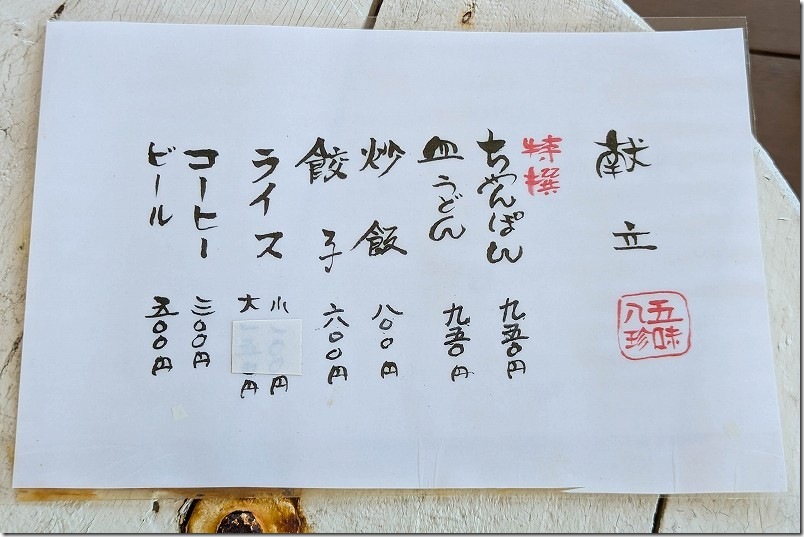 献立
五味
八珍
特撰
ちゃんぽん 九五〇円
皿うどん 九五〇円
炒飯 八〇〇円
餃子 六〇〇円
ライス 小 円
大 円
コーヒー 三〇〇円
ビール 五〇〇円